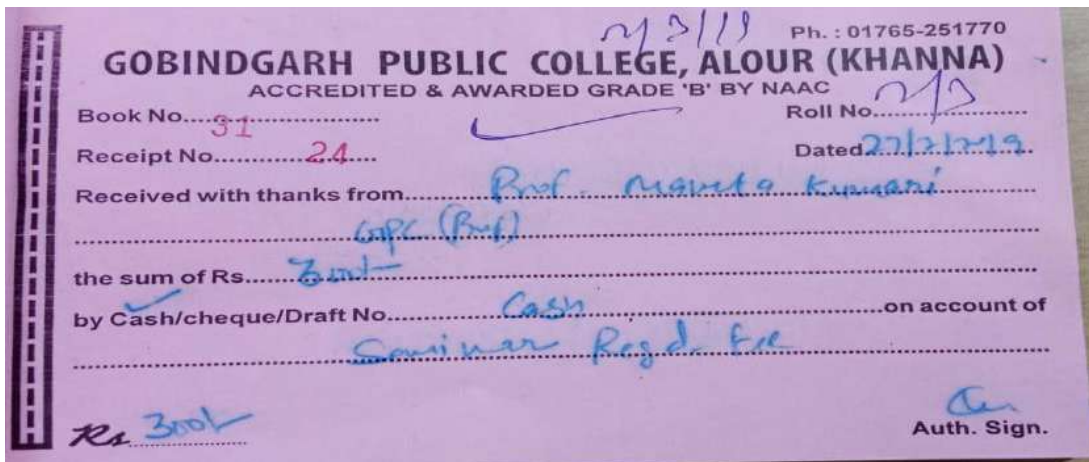 Ph. : 01765-251770
GOBINDGARH PUBLIC COLLEGE, ALOUR (KHANNA)
ACCREDITED & AWARDED GRADE 'B' BY NAAC
Book No. 31
Roll No.
Receipt No. 24
Dated 27/2/2019
Received with thanks from Prof. Kumari
GPC (Prof)
the sum of Rs. 300/-
by Cash/cheque/Draft No. Cash on account of
Seminar Regd. Fee
Rs 300/-
Auth. Sign.